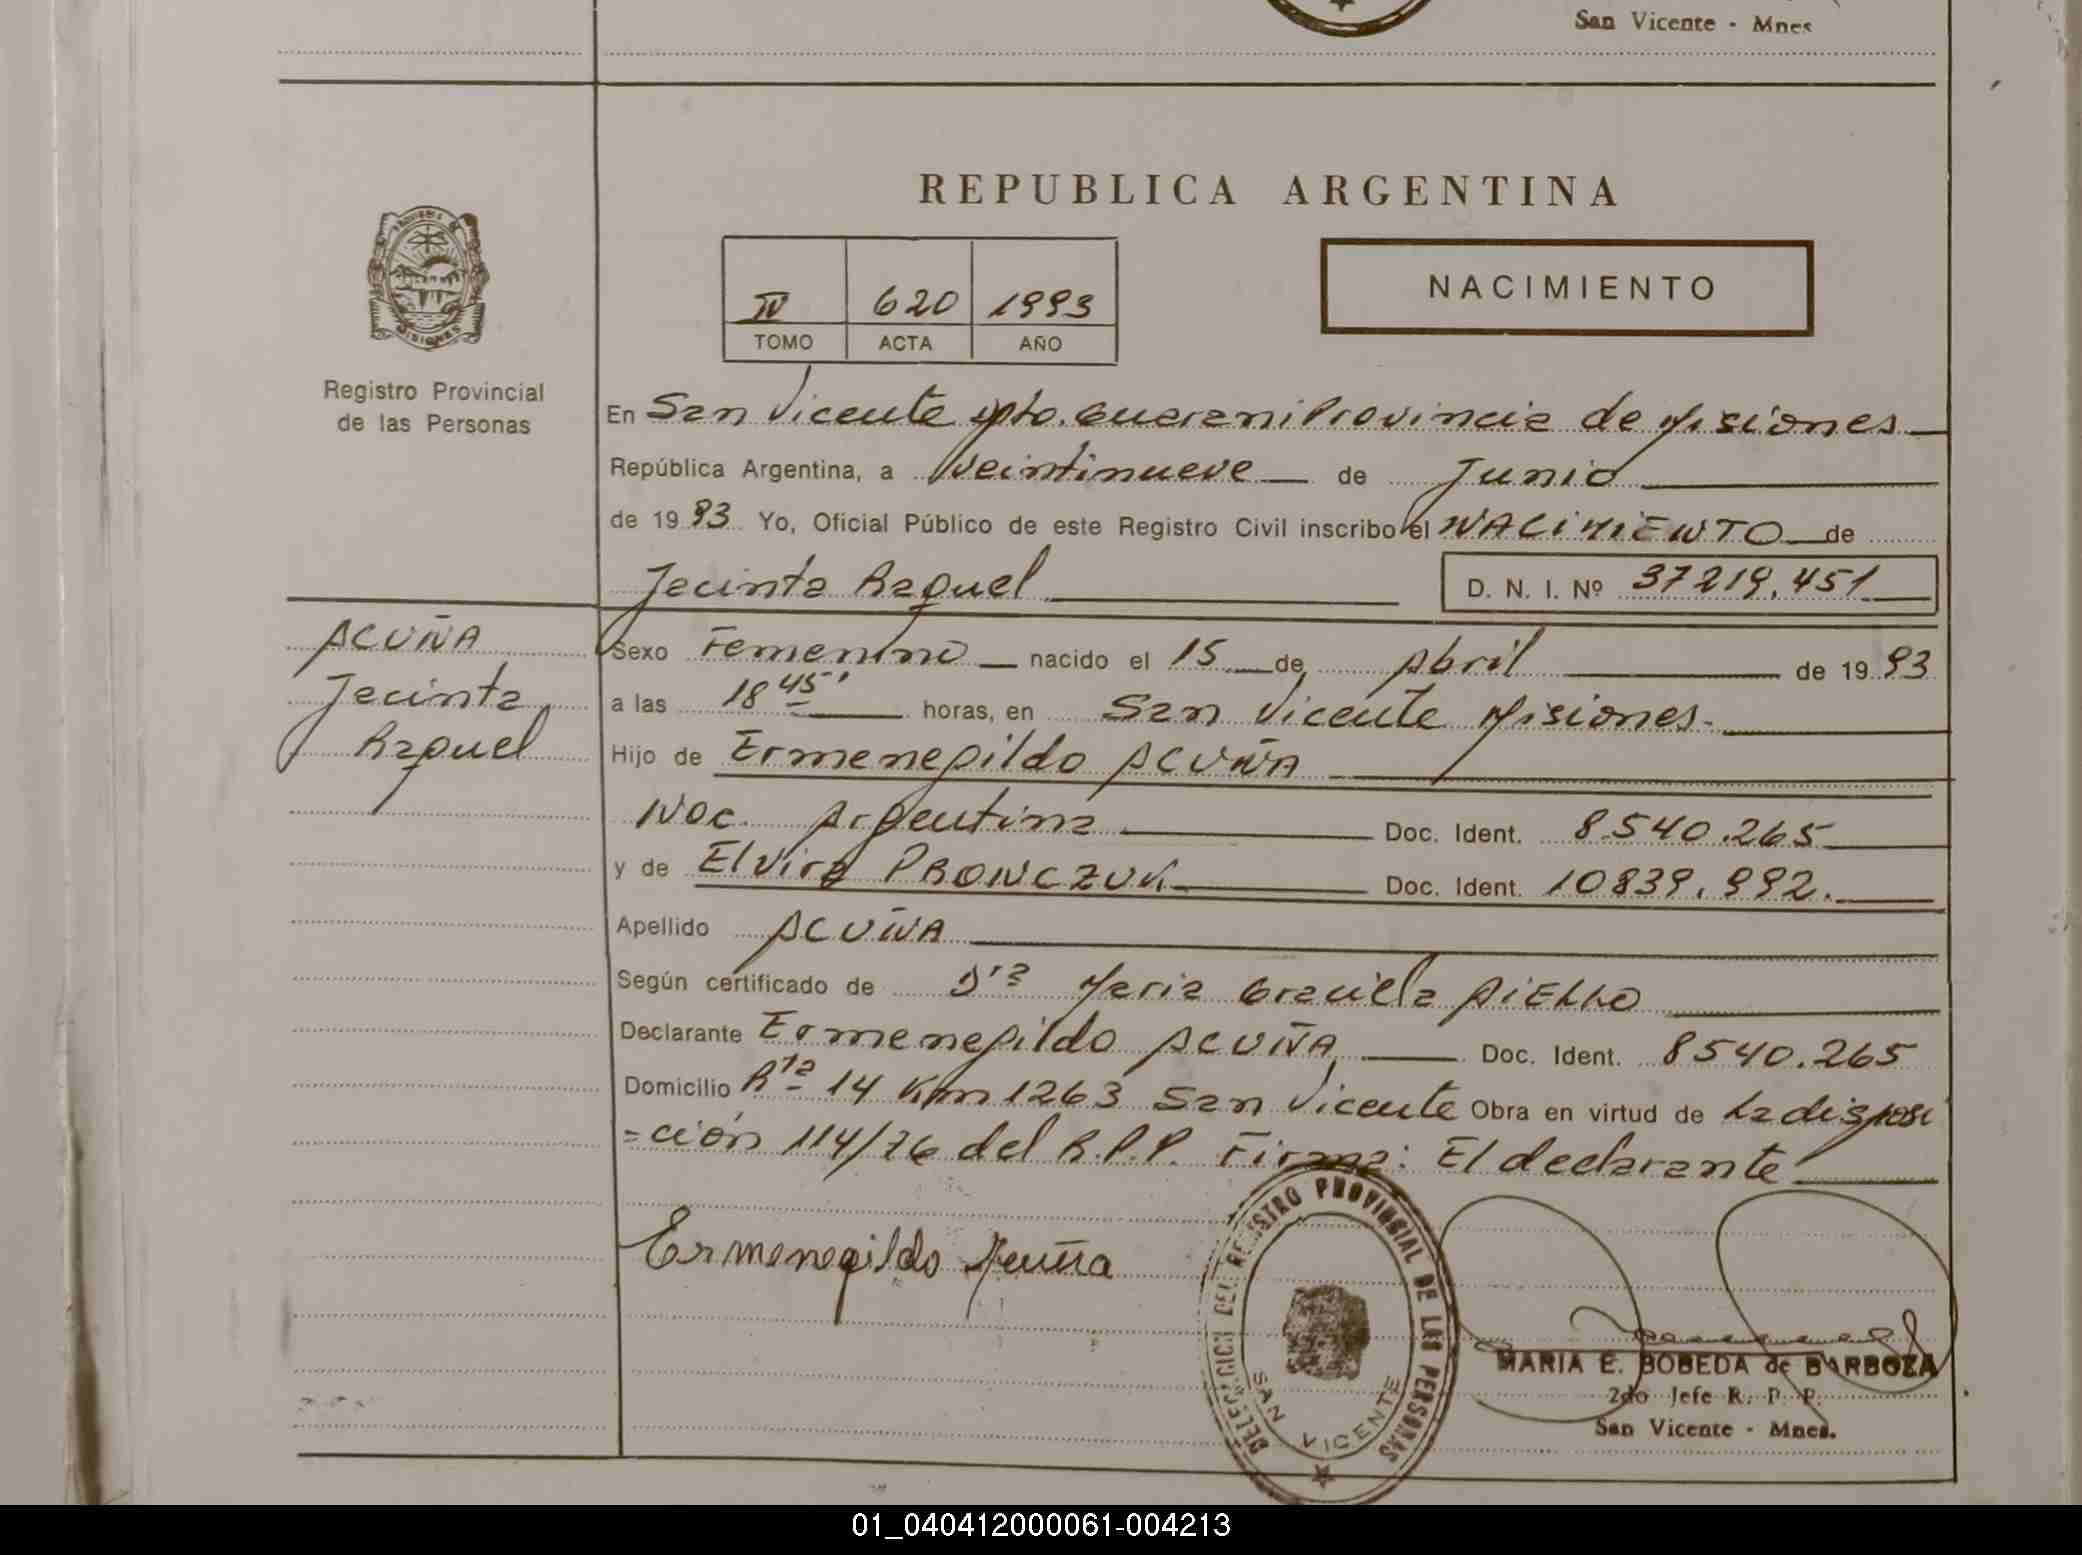 San Vicente - Mnes
REPUBLICA ARGENTINA
IV 620 1993
TOMO ACTA AÑO
NACIMIENTO
PROVINCIA DE
MISIONES
Registro Provincial
de las Personas
En San Vicente Dpto. Guarani Provincia de Misiones
República Argentina, a Veintinueve de Junio
de 19 93 Yo, Oficial Público de este Registro Civil inscribo el NACIMIENTO de
Jacinta Raquel D. N. I. Nº 37219.451
ACUÑA
Jacinta
Raquel
Sexo Femenino nacido el 15 de Abril de 19 93
a las 18 45' horas, en San Vicente Misiones.
Hijo de Ermenegildo ACUÑA
Nac. Argentina Doc. Ident. 8.540.265
y de Elvira PRONCZUK Doc. Ident. 10839.992.
Apellido ACUÑA
Según certificado de Dra Maria Graciela AiELLO
Declarante Ermenegildo ACUÑA Doc. Ident. 8540.265
Domicilio Rta 14 Km 1263 San Vicente Obra en virtud de La disposi
=ción 114/76 del R.P.P. Firma: El declarante
Ermenegildo Acuña
DELEGACION DEL REGISTRO PROVINCIAL DE LAS PERSONAS
SAN VICENTE
MARIA E. BOBEDA de BARBOZA
2do Jefe R. P. P.
San Vicente - Mnes.
01_040412000061-004213